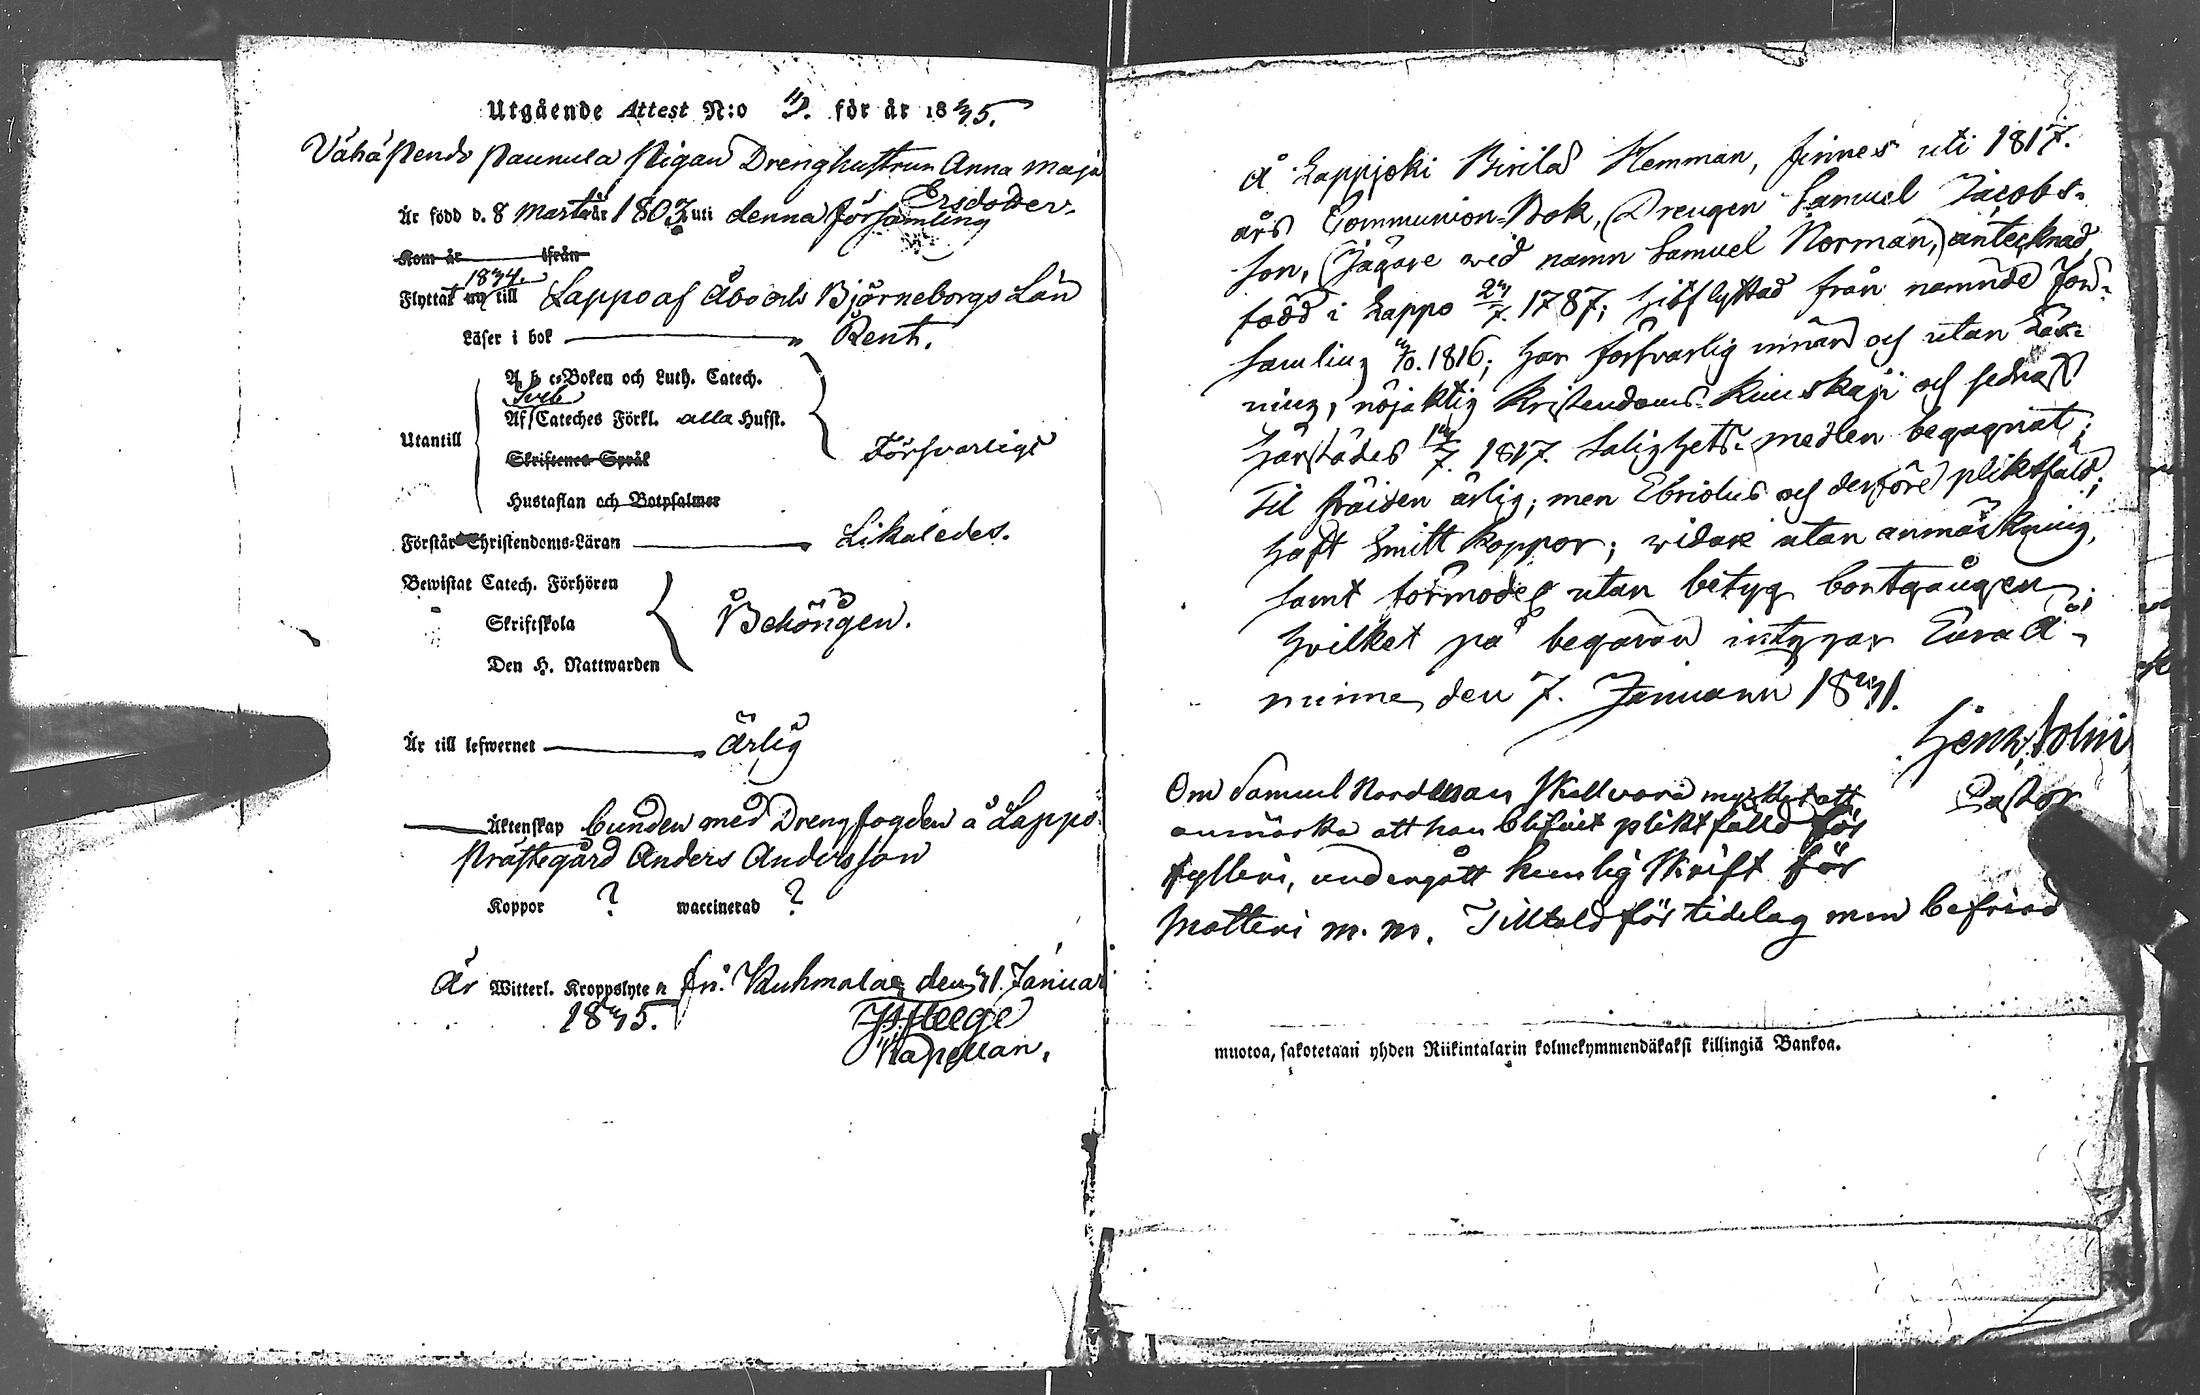 Utgående Attest N:o 3. för år 1835.
Drenghustrun Anna Maja
Ersdotter.
Är född d. 8 Martii år 1807 uti denna församling
Kom år ifrån
1834.
Flyttat till Lappo af Åbo och Björneborgs Län
Läser i bok Rent.
A b c-Boken och Luth. Catech.
Af Cateches Förkl. alla Hufst.
Utantill Försvarligt
Skriftenes Språk
Hustaflan och Botpsalmer
Förstår Christendoms-Läran Likaledes.
Bewistat Catech. Förhören
Skriftskola Behörigen.
Den H. Nattwarden
Är till lefwernet ärlig
Äktenskap bunden med Drengfogden å Lappo
Prästegård Anders Andersson
Koppor ? waccinerad ?
Är Witterl. Kroppslyte n fri. Kuhmalax den 31. Januari
1835.
Kapellan.
Å Lappjoki Kemman, finnes uti 1817.
års Communion-Bok, (Drengen Samuel Jacobs-
son, (Jägare wid namn Samuel Norman,) antecknad,
född i Lappo 1787; hitflyttad från nämnde För-
samling 1816; har försvarlig innan och utan Läs-
ning, nöjaktig Kristendoms-Kunskap och sednast
härstädes 1817. Salighets-medlen begagnat;
Til fräjden ärlig; men Ebriolus och derföre pliktfäld;
haft Smitt koppor; widare utan anmärkning,
samt förmodel. utan betyg bortgången;
hvilket på begäran intygar Eura Å-
minne, den 7. Januarii 1831.
Pastor
Om Samuel Nordman skall vara mycket att
anmärka att han blifvit pliktfälld för
fylleri, undergått hemlig skrift för
m. m. Tilltald för tidelag men befriad
muotoa, sakotetaan yhden Riikintalarin kolmekymmendäkaksi killingiä Bankoa.